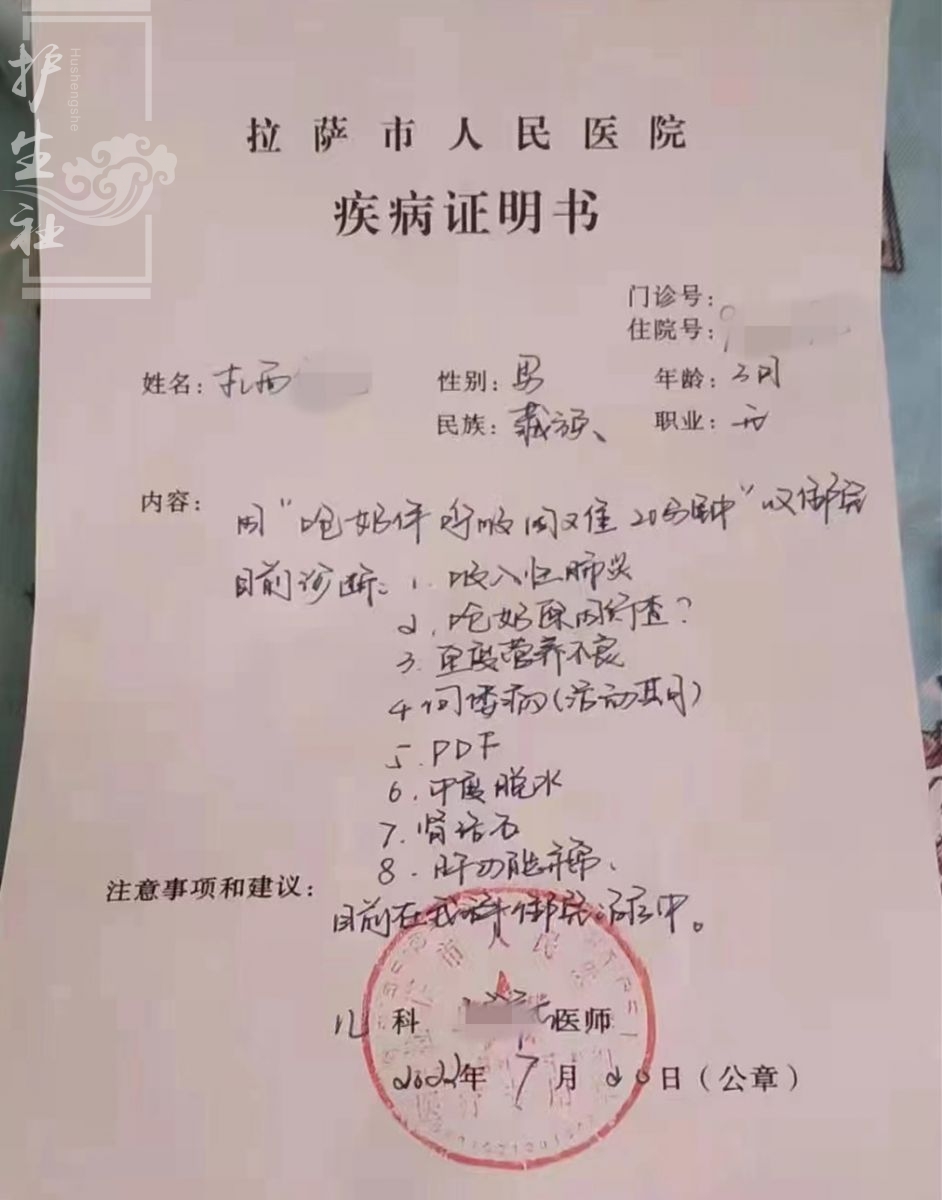 护生社
Hushengshe
拉萨市人民医院
疾病证明书
门诊号:
住院号:
姓名: 扎西 性别: 男 年龄: 3月
民族: 藏族、 职业: 无
内容:
因“呛奶伴呼吸困难20分钟”收住院
目前诊断: 1. 吸入性肺炎
2. 呛奶原因待查?
3. 重度营养不良
4. 佝偻病(活动期)
5. PDF
6. 中度脱水
7. 肾结石
8. 肝功能
注意事项和建议:
目前在我科住院治疗中。
市人民
儿科 医师
2022年7月20日(公章)